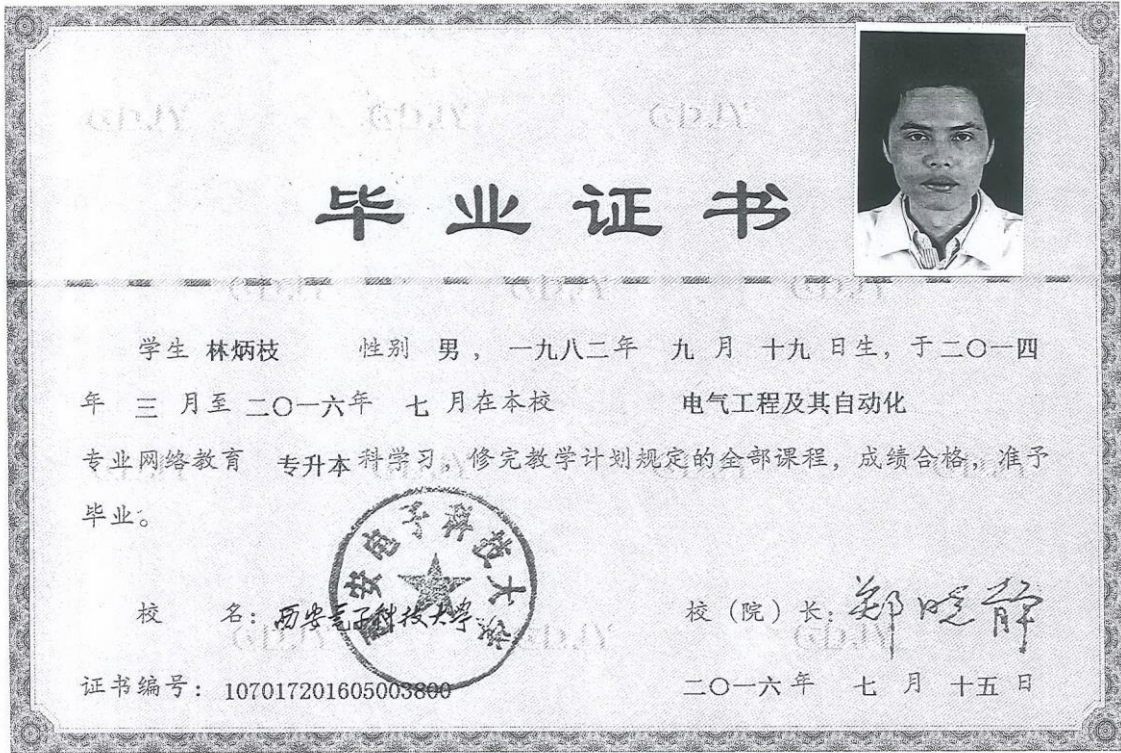 毕业证书
学生 林炳枝 性别 男 ，一九八二年 九 月 十九 日生，于二〇一四
年 三 月至 二〇一六年 七 月在本校 电气工程及其自动化
专业网络教育 专升本 科学习，修完教学计划规定的全部课程，成绩合格，准予
毕业。
西安电子科技大学
校 名：西安电子科技大学 校（院）长：郑晓静
证书编号：107017201605003800 二〇一六年 七 月 十五 日